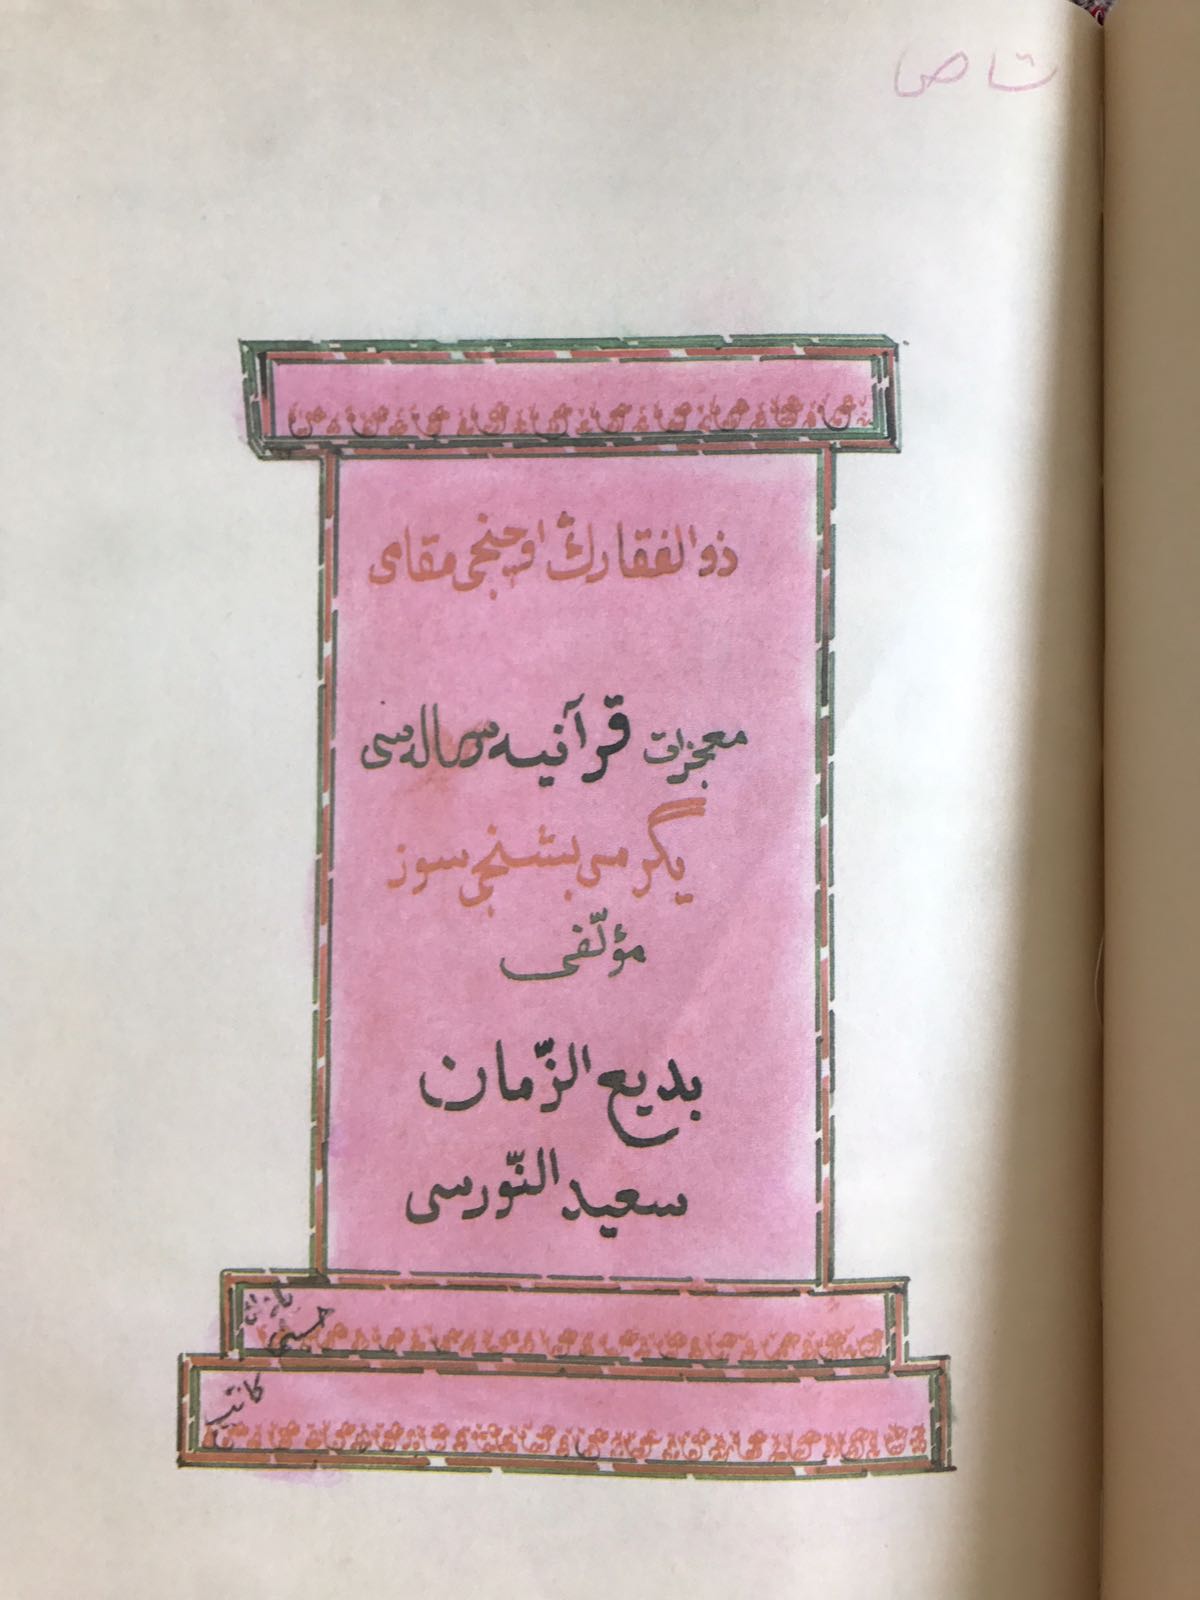 ذوالفقارڭ اوچنجى مقامى
معجزات قرآنيه رساله سى
يگرمى بشنجى سوز
مؤلّفى
بديع الزّمان
سعيد النّورسى
كاتب